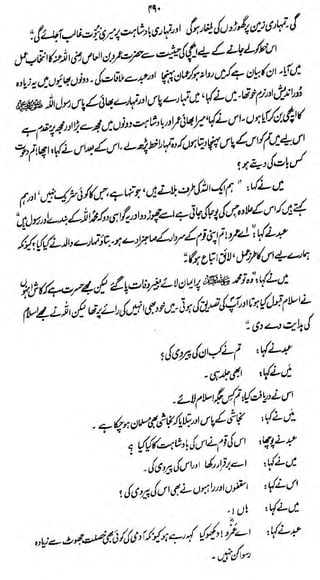 ۴۹۰
گی۔ تمہاری زمین پر گھوڑوں کی یلغار ہوگی اور تمہاری بادشاہت پر میری نبوت غالب آجائے گی"۔
اس خط کو لے جانے کے لیے ایلچی کی حیثیت سے حضرت عمرو بن العاص رضی اللہ عنہ کا انتخاب عمل
میں آیا۔ ان کا بیان ہے کہ میں روانہ ہو کر عمان پہنچا اور عبد سے ملاقات کی۔ دونوں بھائیوں میں یہ زیادہ
دور اندیش اور نرم خو تھا۔ میں نے کہا، میں تمہارے پاس اور تمہارے بھائی کے پاس رسول اللہ ﷺ
کا ایلچی بن کر آیا ہوں۔ اس نے کہا، میرا بھائی عمر اور بادشاہت دونوں میں مجھ سے بڑا اور مجھ پر مقدم ہے
اس لیے میں تم کو اس کے پاس پہنچا دیتا ہوں کہ وہ تمہارا خط پڑھ لے۔ اس کے بعد اس نے کہا، اچھا تم دعوت
کس بات کی دیتے ہو؟
میں نے کہا: "ہم ایک اللہ کی طرف بلاتے ہیں، جو تنہا ہے، جس کا کوئی شریک نہیں، اور ہم
کہتے ہیں کہ اس کے علاوہ جس کی پوجا کی جاتی ہے اسے چھوڑ دو اور یہ گواہی دو کہ محمد اللہ کے بندے اور رسول ہیں"
عبد نے کہا: "اے عمرو! تم اپنی قوم کے سردار کے صاحبزادے ہو۔ بتاؤ تمہارے والد نے کیا کیا؟ کیونکہ
ہمارے لیے اس کا طرز عمل، لائق اتباع ہوگا"۔
میں نے کہا: "وہ تو محمد ﷺ پر ایمان لائے بغیر وفات پا گئے لیکن مجھے حسرت ہے کہ کاش انہوں
نے اسلام قبول کیا ہوتا اور آپ کی تصدیق کی ہوتی۔ میں خود بھی انہیں کی رائے پر تھا لیکن اللہ نے مجھے اسلام
کی ہدایت دے دی"۔
عبد نے کہا: تم نے کب ان کی پیروی کی؟
میں نے کہا: ابھی جلد ہی۔
اس نے دریافت کیا: تم کس جگہ اسلام لائے۔
میں نے کہا: نجاشی کے پاس اور بتلایا کہ نجاشی بھی مسلمان ہو چکا ہے۔
عبد نے پوچھا: اس کی قوم نے اس کی بادشاہت کا کیا کیا؟
میں نے کہا: اسے برقرار رکھا اور اس کی پیروی کی۔
اس نے کہا: اسقفوں اور راہبوں نے بھی اس کی پیروی کی؟
میں نے کہا: ہاں!۔
عبد نے کہا: اے عمرو! دیکھو کیا کہہ رہے ہو کیونکہ آدمی کی کوئی بھی خصلت جھوٹ سے زیادہ
رسوا کن نہیں۔